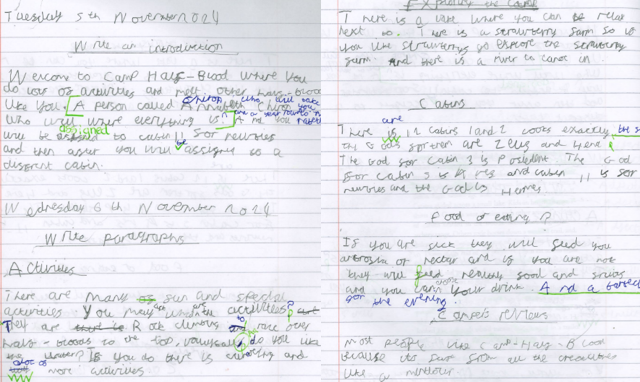 Tuesday 5th November 2024
Write an introduction
Welcome to Camp Half-Blood where you
do lots of activities and meet other Half-Bloods
like you. A person called Chiron, who will take
who will where everything is. And you
will be assigned to cabin 11 for newbies
and then after you will be assigne to a
different cabin.
Wednesday 6th November 2024
Write paragraphs
Activities
There are many fun and special
activities You may activities?
They are Rock climbing to race other
half-bloods to the top, do you like
the If you do there is and
more activities.
Exploring the Camp
There is a lake where you can be relax
next to. There is a strawberry farm so if
you like strawberrys go explore the strawberry
farm. And there is a river to canoe in.
Cabins
There are 12 cabins 1 and 2 looks exactly
The Gods for them are Zeus and Hera.
The God for Cabin 3 is Poseidon. The God
for Cabin 5 is Ares and cabin 11 is for
newbies and the God is Hermes
Food or eating?
If you are sick they will feed you
ambrosia or nectar and if you are not
they will feed food and fruits
and you can your drink. And a barbecue
for the evening.
Campers reviews
most people like Camp-Half-Blood
because its fun all the creatures
like a minotaur.